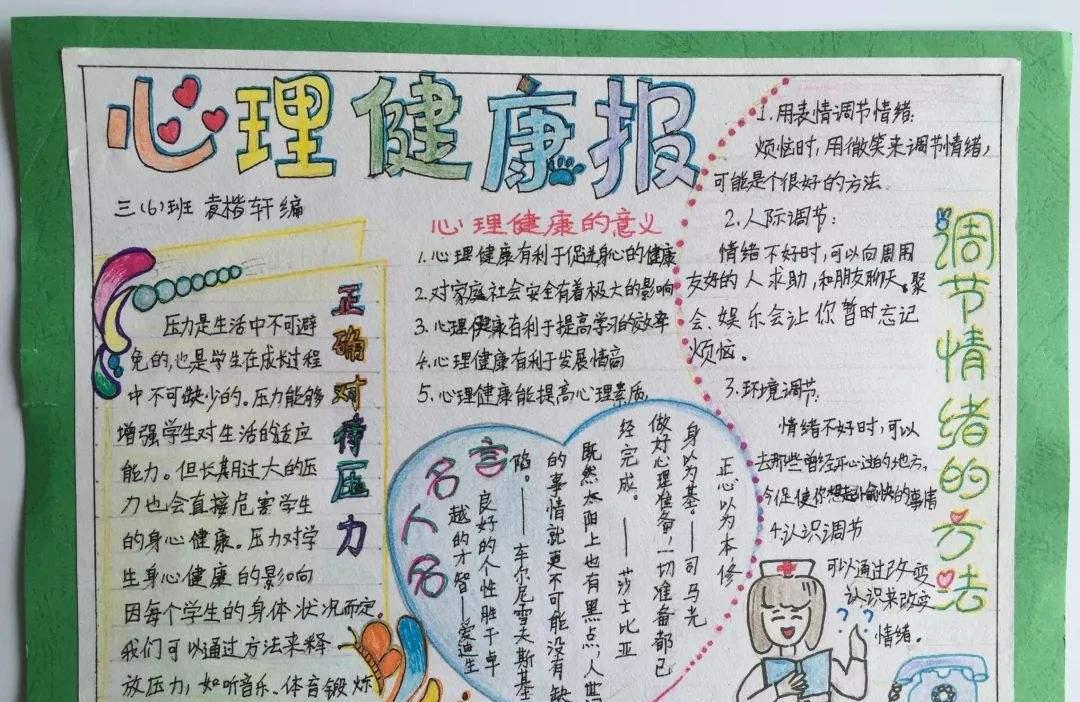 心理健康报
三(6)班 袁楷轩编
正确对待压力
压力是生活中不可避
免的,也是学生在成长过程
中不可缺少的。压力能够
增强学生对生活的适应
能力。但长期过大的压
力也会直接危害学生
的身心健康。压力对学
生身心健康的影响
因每个学生的身体状况而定。
我们可以通过方法来释
放压力,如听音乐、体育锻炼
心理健康的意义
1.心理健康有利于促进身心的健康
2.对家庭社会安全有着极大的影响
3.心理健康有利于提高学习的效率
4.心理健康有利于发展情高
5.心理健康能提高心理素质
名人名言
正心以为本修
身以为基——司马光
做好心理准备,一切准备都已
经完成。——莎士比亚
既然太阳上也有黑点,人世间
的事情就更不可能没有缺
陷。——车尔尼雪夫斯基
良好的个性胜于卓
越的才智——爱迪生
调节情绪的方法
1.用表情调节情绪:
烦恼时,用微笑来调节情绪,
可能是个很好的方法。
2.人际调节:
情绪不好时,可以向周用
友好的人求助,和朋友聊天、聚
会、娱乐会让你暂时忘记
烦恼。
3.环境调节:
情绪不好时,可以
去那些曾经开心过的地方,
会促使你想起愉快的事情
4.认识调节
可以通过改变
认识来改变
情绪。
? ?